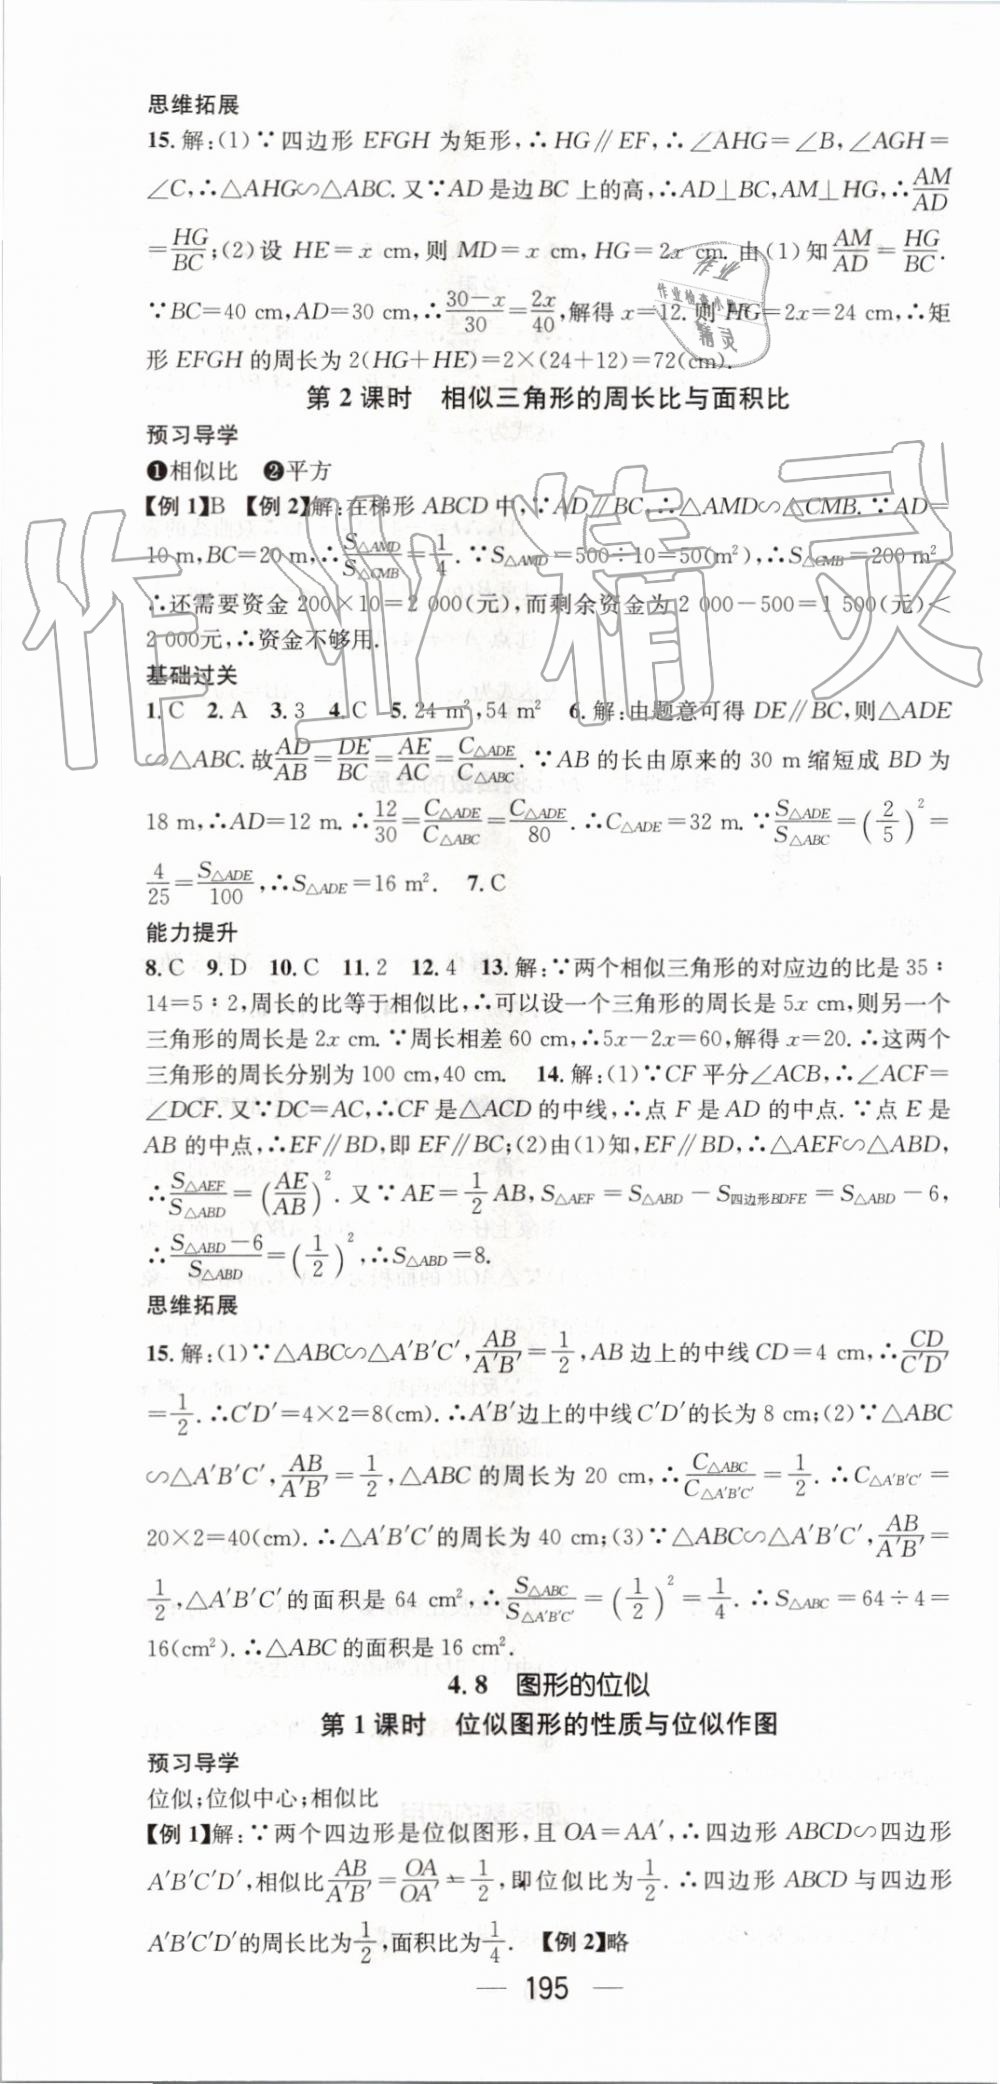 思维拓展
15.解:(1)∵四边形 EFGH 为矩形,∴HG∥EF,∴∠AHG=∠B,∠AGH=
∠C,∴△AHG∽△ABC.又∵AD是边BC上的高,∴AD⊥BC,AM⊥HG,∴AM/AD
=HG/BC;(2)设 HE=x cm,则 MD=x cm,HG=2x cm.由(1)知AM/AD=HG/BC.
∵BC=40 cm,AD=30 cm,∴(30-x)/30=2x/40,解得 x=12.则 HG=2x=24 cm,∴矩
形 EFGH 的周长为 2(HG+HE)=2×(24+12)=72(cm).
第 2 课时 相似三角形的周长比与面积比
预习导学
❶相似比 ❷平方
【例 1】B 【例 2】解:在梯形 ABCD 中,∵AD∥BC,∴△AMD∽△CMB.∵AD=
10 m,BC=20 m,∴S△AMD/S△CMB=1/4.∵S△AMD=500÷10=50(m²),∴S△CMB=200 m²
∴还需要资金 200×10=2 000(元),而剩余资金为 2 000-500=1 500(元)<
2 000元,∴资金不够用.
基础过关
1.C 2.A 3.3 4.C 5.24 m²,54 m² 6.解:由题意可得 DE∥BC,则△ADE
∽△ABC.故AD/AB=DE/BC=AE/AC=C△ADE/C△ABC.∵AB 的长由原来的 30 m 缩短成 BD 为
18 m,∴AD=12 m.∴12/30=C△ADE/C△ABC=C△ADE/80.∴C△ADE=32 m.∵S△ADE/S△ABC=(2/5)²=
4/25=S△ADE/100,∴S△ADE=16 m². 7.C
能力提升
8.C 9.D 10.C 11.2 12.4 13.解:∵两个相似三角形的对应边的比是 35∶
14=5∶2,周长的比等于相似比,∴可以设一个三角形的周长是 5x cm,则另一个
三角形的周长是 2x cm.∵周长相差 60 cm,∴5x-2x=60,解得 x=20.∴这两个
三角形的周长分别为 100 cm,40 cm. 14.解:(1)∵CF 平分∠ACB,∴∠ACF=
∠DCF.又∵DC=AC,∴CF 是△ACD 的中线,∴点 F 是 AD 的中点.∵点 E 是
AB 的中点,∴EF∥BD,即 EF∥BC;(2)由(1)知,EF∥BD,∴△AEF∽△ABD,
∴S△AEF/S△ABD=(AE/AB)².又∵AE=1/2 AB,S△AEF=S△ABD-S四边形BDFE=S△ABD-6,
∴(S△ABD-6)/S△ABD=(1/2)²,∴S△ABD=8.
思维拓展
15.解:(1)∵△ABC∽△A′B′C′,AB/A′B′=1/2,AB 边上的中线 CD=4 cm,∴CD/C′D′
=1/2.∴C′D′=4×2=8(cm).∴A′B′边上的中线 C′D′的长为 8 cm;(2)∵△ABC
∽△A′B′C′,AB/A′B′=1/2,△ABC 的周长为 20 cm,∴C△ABC/C△A′B′C′=1/2.∴C△A′B′C′=
20×2=40(cm).∴△A′B′C′的周长为 40 cm;(3)∵△ABC∽△A′B′C′,AB/A′B′=
1/2,△A′B′C′的面积是 64 cm²,∴S△ABC/S△A′B′C′=(1/2)²=1/4.∴S△ABC=64÷4=
16(cm²).∴△ABC 的面积是 16 cm².
4.8 图形的位似
第 1 课时 位似图形的性质与位似作图
预习导学
位似;位似中心;相似比
【例 1】解:∵两个四边形是位似图形,且 OA=AA′,∴四边形 ABCD∽四边形
A′B′C′D′,相似比AB/A′B′=OA/OA′=1/2,即位似比为1/2.∴四边形 ABCD 与四边形
A′B′C′D′的周长比为1/2,面积比为1/4. 【例 2】略
195
作业精灵
作业
作业检查小
精灵